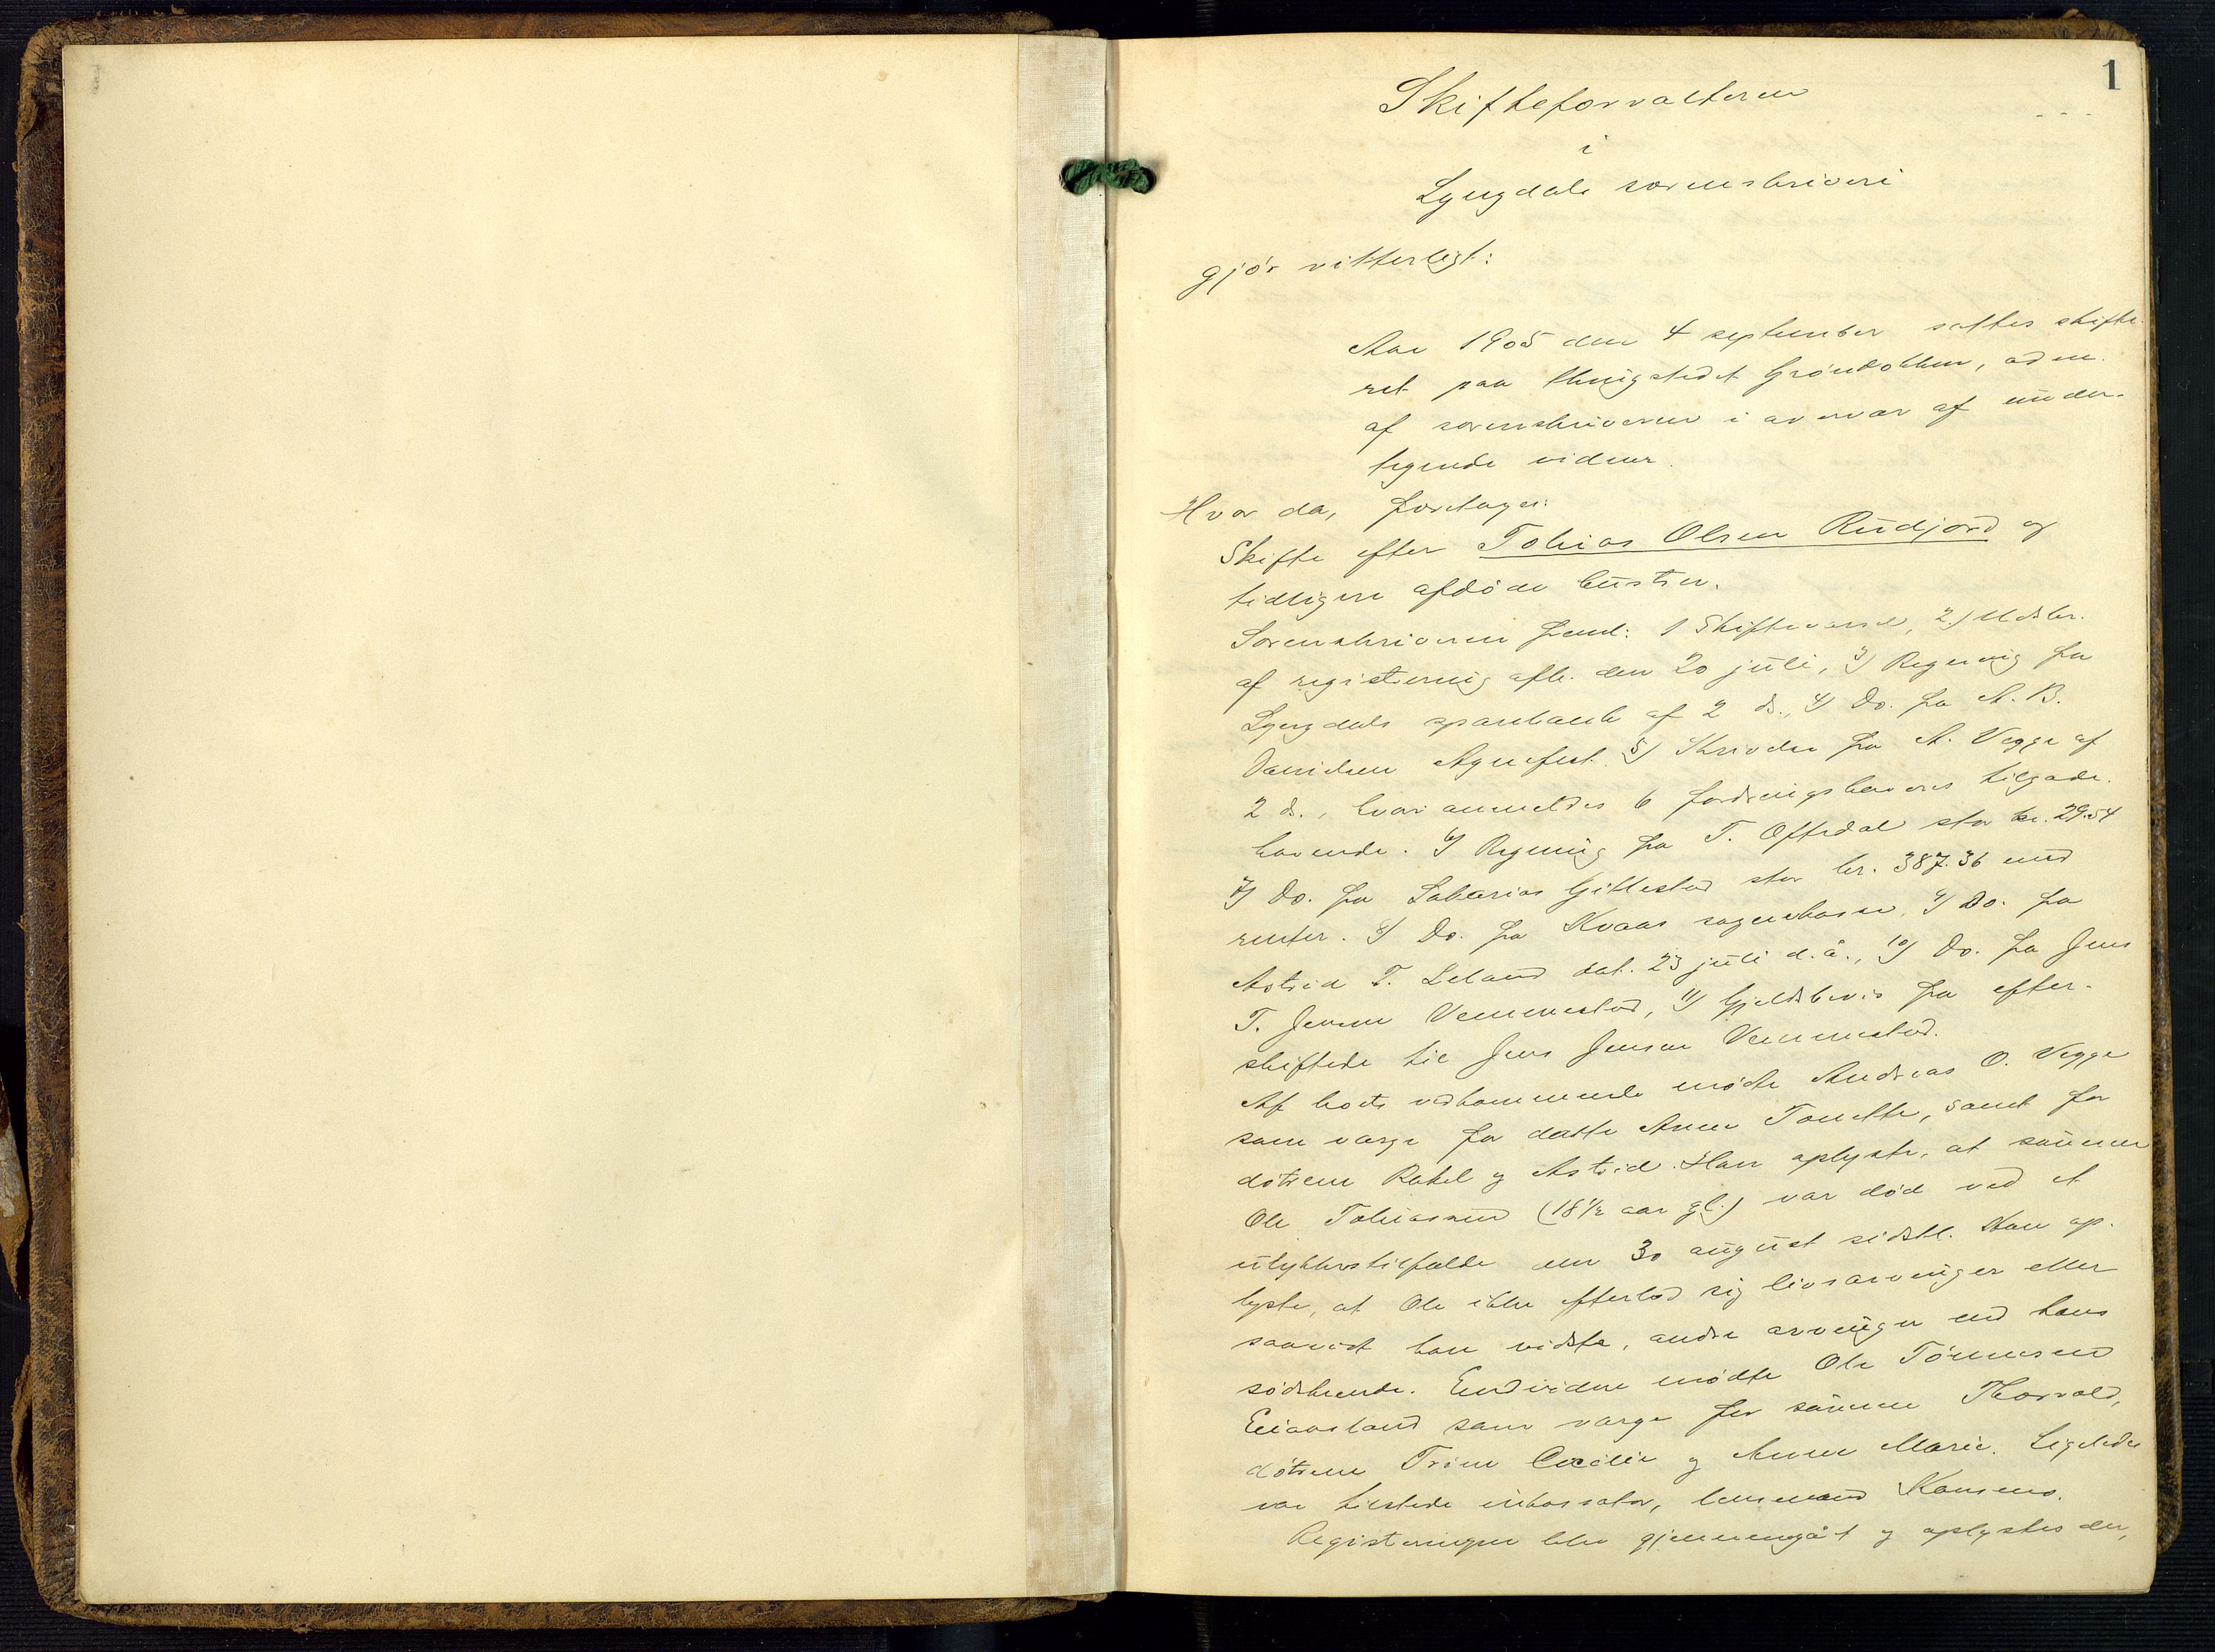 1
Skifteforvalteren
i
Lyngdals sorenskriveri
gjör vitterligt:
Aar 1905 den 4 september sattes skifte-
ret paa thingstedet Gröndokken, adm.
af sorenskriveren i overvær af under-
tegnede vidner.
Hvor da, foretoges:
Skifte efter Tobias Olsen Rudjord og
tidligere afdöde hustru.
Sorenskriveren freml: 1 Skiftevarsel, 2) Udskr.
af registrering afh. den 20 juli, 3) Regning fra
Lyngdals sparebank af 2 ds., 4) Do. fra A. B.
Danielsen Agnefest. 5) Skrivelse fra A. Vegge af
2 ds., hvor anmeldes 6 fordringshaveres tilgode-
havende. 6) Regning fra T. Oftedal stor kr. 29.54
7) Do. fra Sakarias Gitlestad stor kr. 387.36 med
renter. 8) Do. fra Kvaas sognekasse, 9) Do. fra
Astrid T. Leland dat. 23 juli d. å., 10) Do. fra Jens
T. Jensen Vemmestad, 11) Gjeldsbevis fra efter-
skiftede til Jens Jensen Vemmestad.
Af boets vedkommende mödte Andreas O. Vegge
som værge for datte Anne Tonette, samt for
dötrene Rakel og Astrid. Han oplyste, at sönnen
Ole Tobiassen (18 1/2 aar gl.) var död ved et
ulykkestilfælde den 30 august sidstl. Han op-
lyste, at Ole ikke efterlod sig livsarvinger eller
saavidt han vidste, andre arvinger end hans
södskende. Endvidere mödte Ole Tönnesen
Eiausland som værge for sönnen Thorvald,
dötrene Trine Cecilie og Anne Marie. Ligeledes
var tilstede inkassator, lensmand Hansens.
Registreringen blev gjennemgåt og oplystes der,